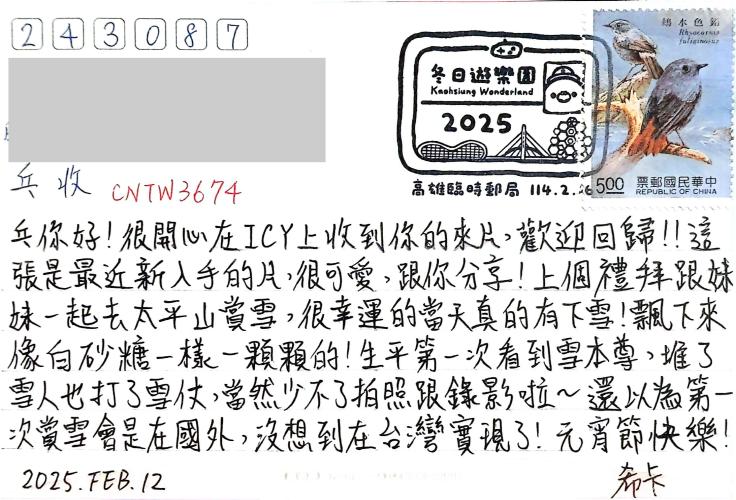 243087
鉛色水鶇
Rhyacornis
fuliginosus
冬日遊樂園
Kaohsiung Wonderland
2025
高雄臨時郵局 114.2.16
5.00
中華民國郵票
REPUBLIC OF CHINA
兵 收 CNTW3674
兵你好!很開心在ICY上收到你的來片,歡迎回歸!!這
張是最近新入手的片,很可愛,跟你分享!上個禮拜跟妹
妹一起去太平山賞雪,很幸運的當天真的有下雪!飄下來
像白砂糖一樣一顆顆的!生平第一次看到雪本尊,堆了
雪人也打了雪仗,當然少不了拍照跟錄影啦~還以為第一
次賞雪會是在國外,沒想到在台灣實現了!元宵節快樂!
2025.FEB.12
希卡